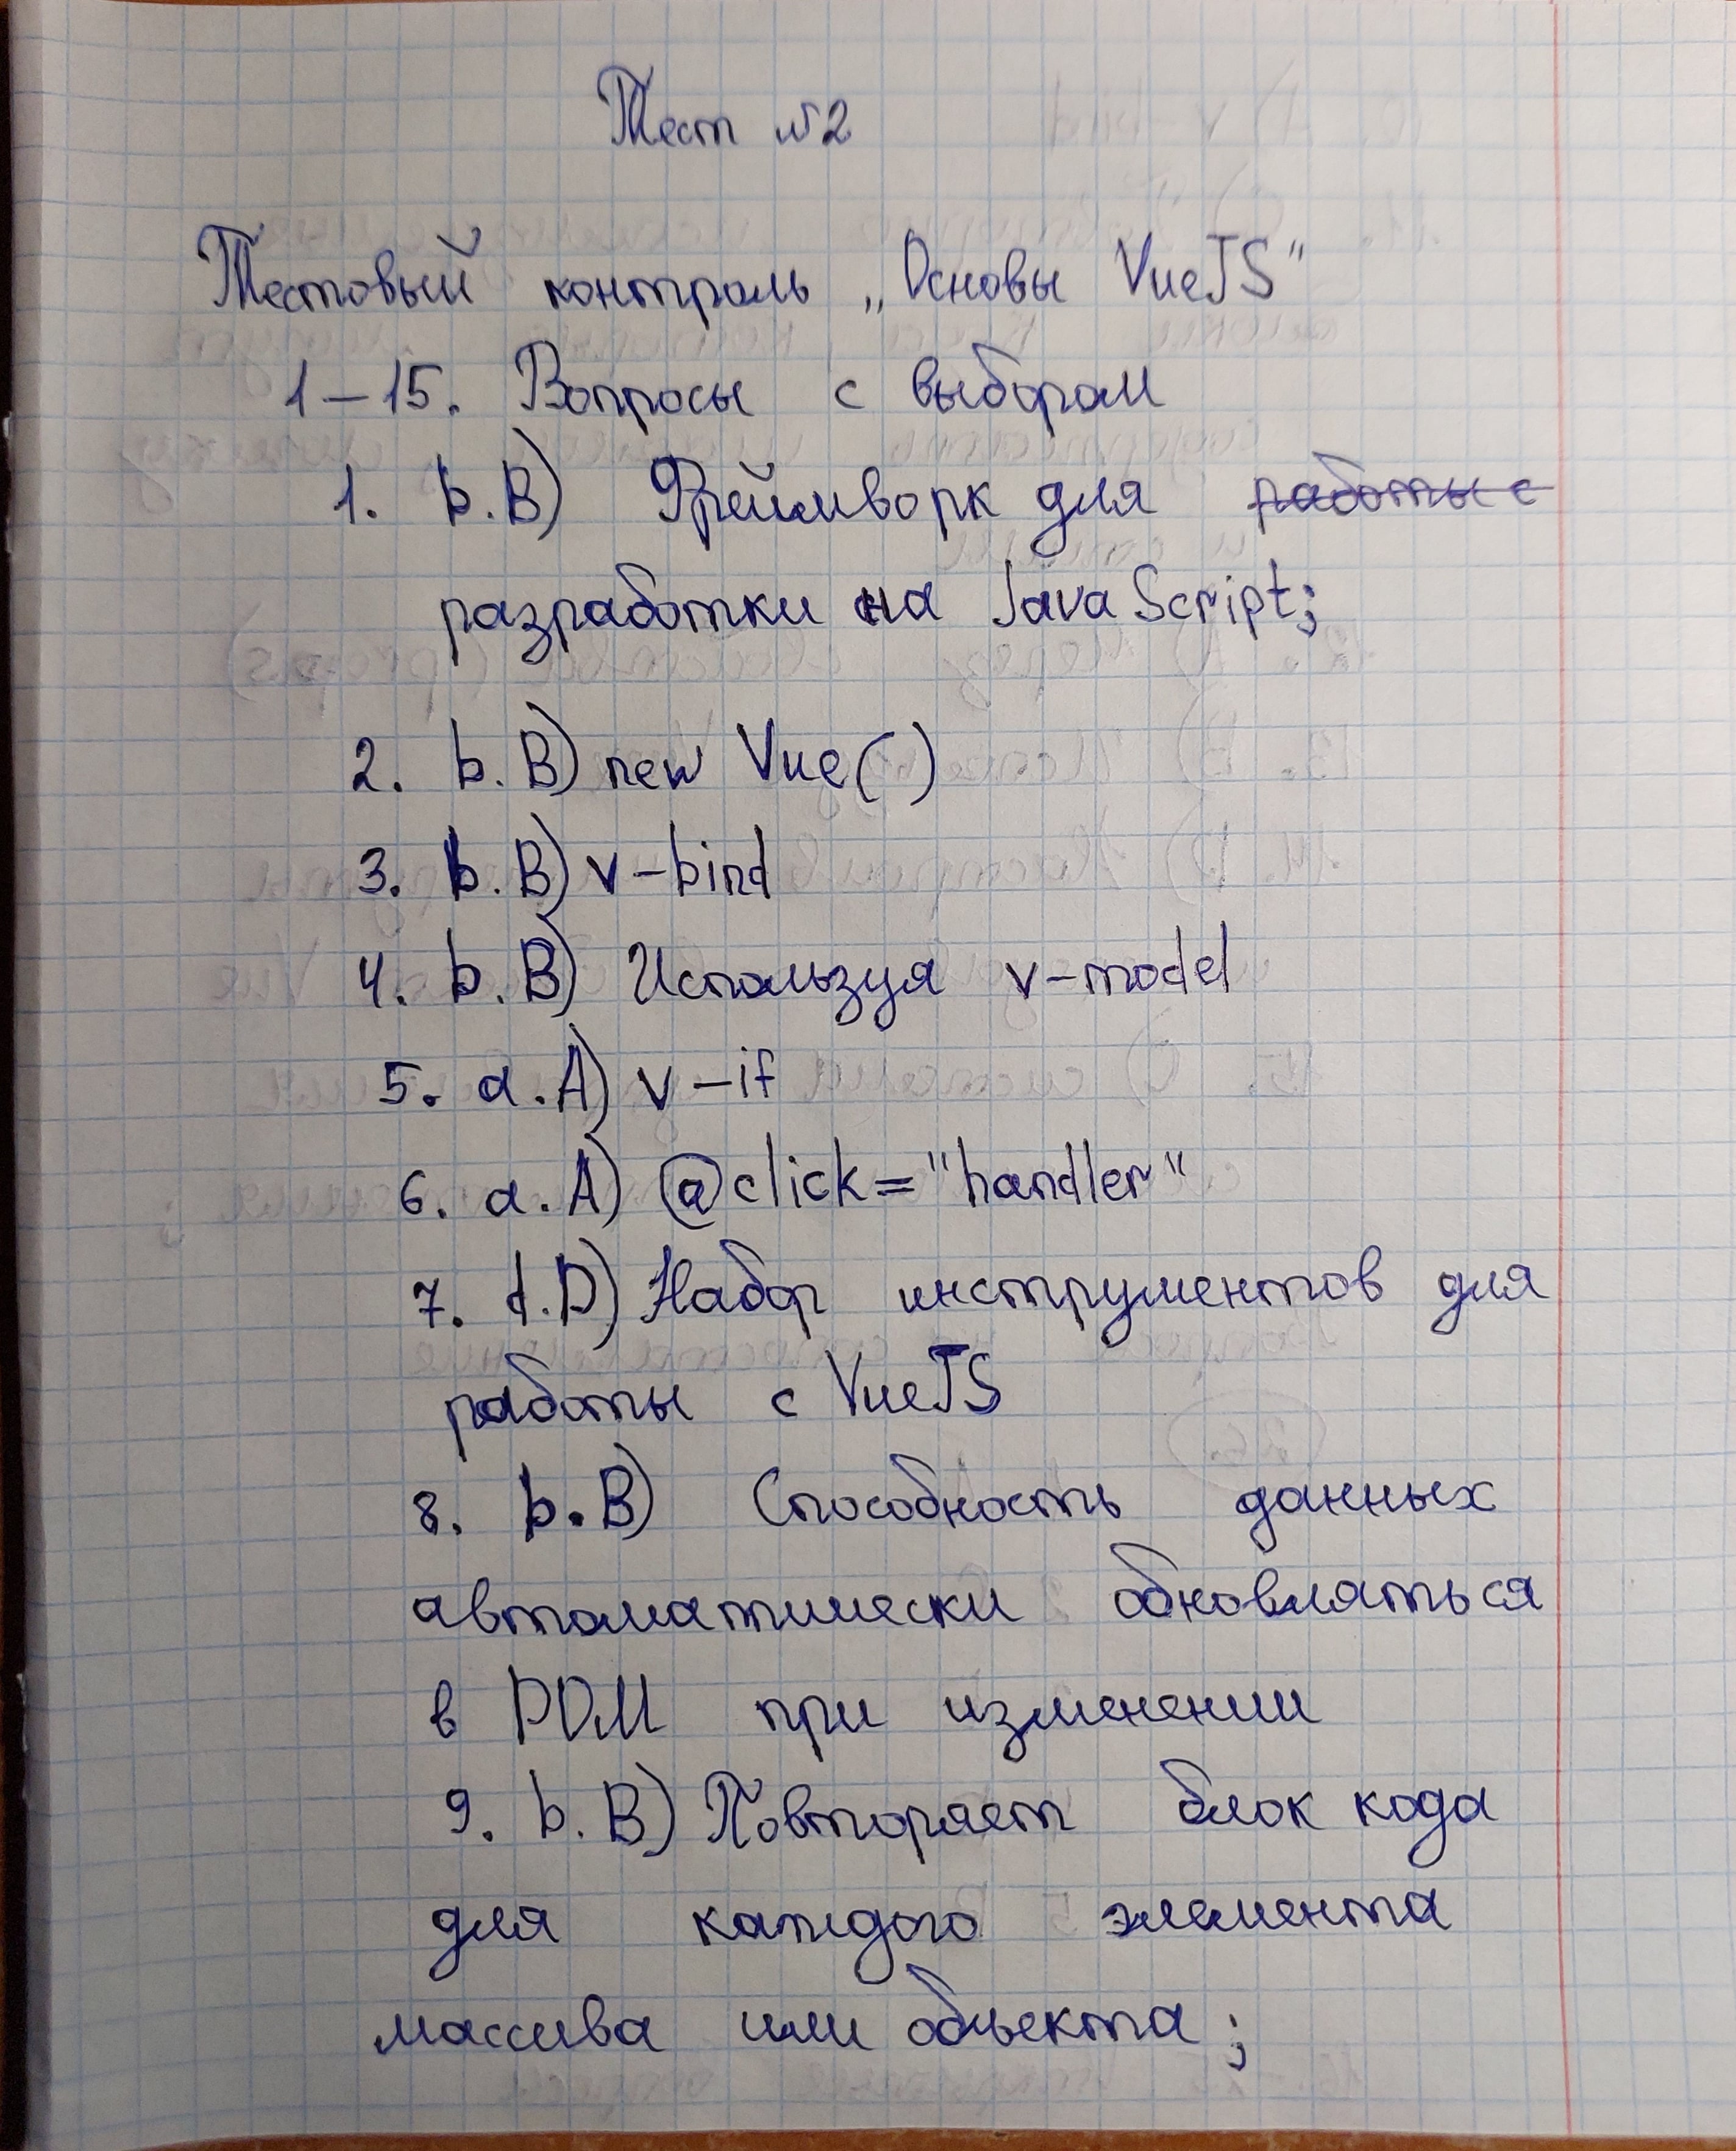 Тест №2
Тестовый контроль „Основы VueJS"
1–15. Вопросы с выбором
1. b.B) Фреймворк для работы с
разработки на JavaScript;
2. b.B) new Vue()
3. b.B) v-bind
4. b.B) Используя v-model
5. a.A) v-if
6. a.A) @click="handler"
7. d.D) Набор инструментов для
работы с VueJS
8. b.B) Способность данных
автоматически обновляться
в DOM при изменении
9. b.B) Повторяет блок кода
для каждого элемента
массива или объекта;